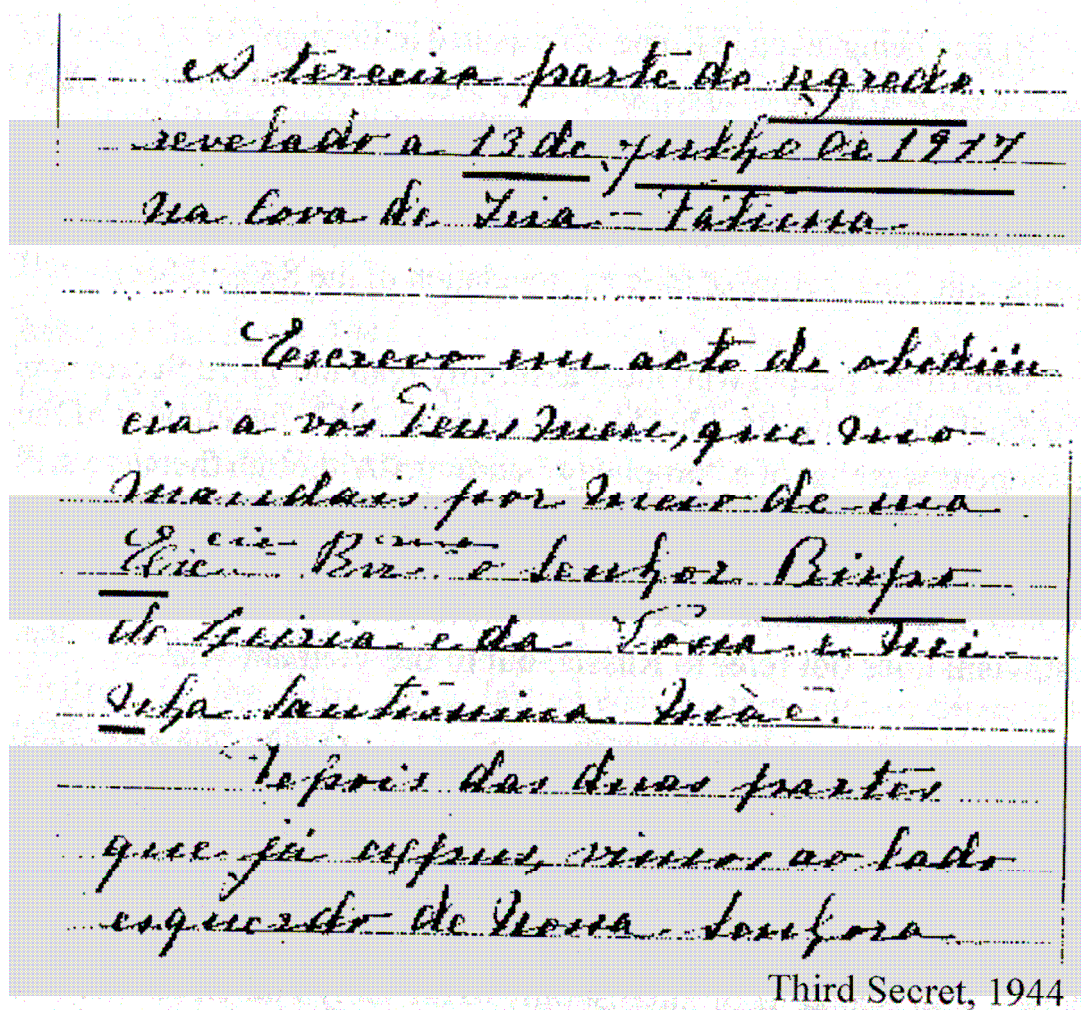 A terceira parte do segredo
revelado a 13 de julho de 1917
na Cova de Iria - Fátima
Escrevo em acto de obediên
cia a vós Deus meu, que mo
mandais por meio de sua
Ex.cia Rev.ma o Senhor Bispo
de Leiria e da Vossa e mi-
nha Santissima Mãe.
Depois das duas partes
que já expus, vimos ao lado
esquerdo de Nossa Senhora
Third Secret, 1944